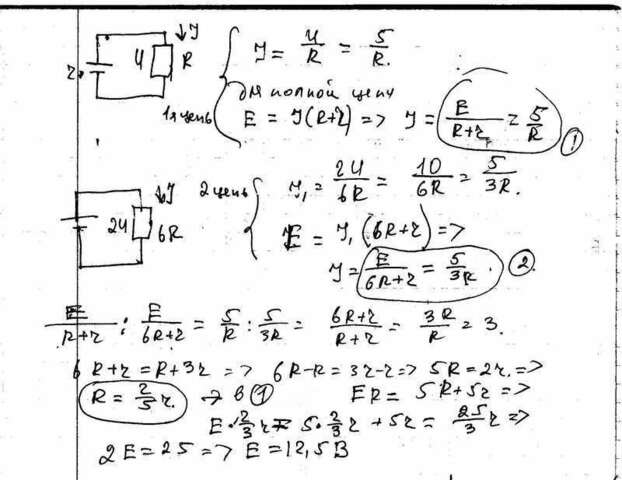 r
U
R
↓J
1я цепь
J = U/R = 5/R.
для полной цепи
E = J(R+r) => J = E/(R+r) = 5/R ①
2U
6R
↓J
2 цепь
J₁ = 2U/6R = 10/6R = 5/3R.
E = J₁(6R+r) =>
J = E/(6R+r) = 5/3R. ②
E/(R+r) : E/(6R+r) = 5/R : 5/3R = (6R+r)/(R+r) = 3R/R = 3.
6R+r = R+3r => 6R-R = 3r-r => 5R = 2r. =>
R = 2/5 r. → в ① ER = 5R+5r =>
E·2/3 r = 5·2/3 r + 5r = 25/3 r =>
2E = 25 => E = 12,5 В